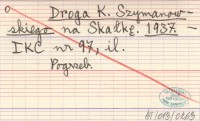 Droga K. Szymanow-
skiego na Skałkę. 1937. -
IKC nr 97, il.
Pogrzeb.